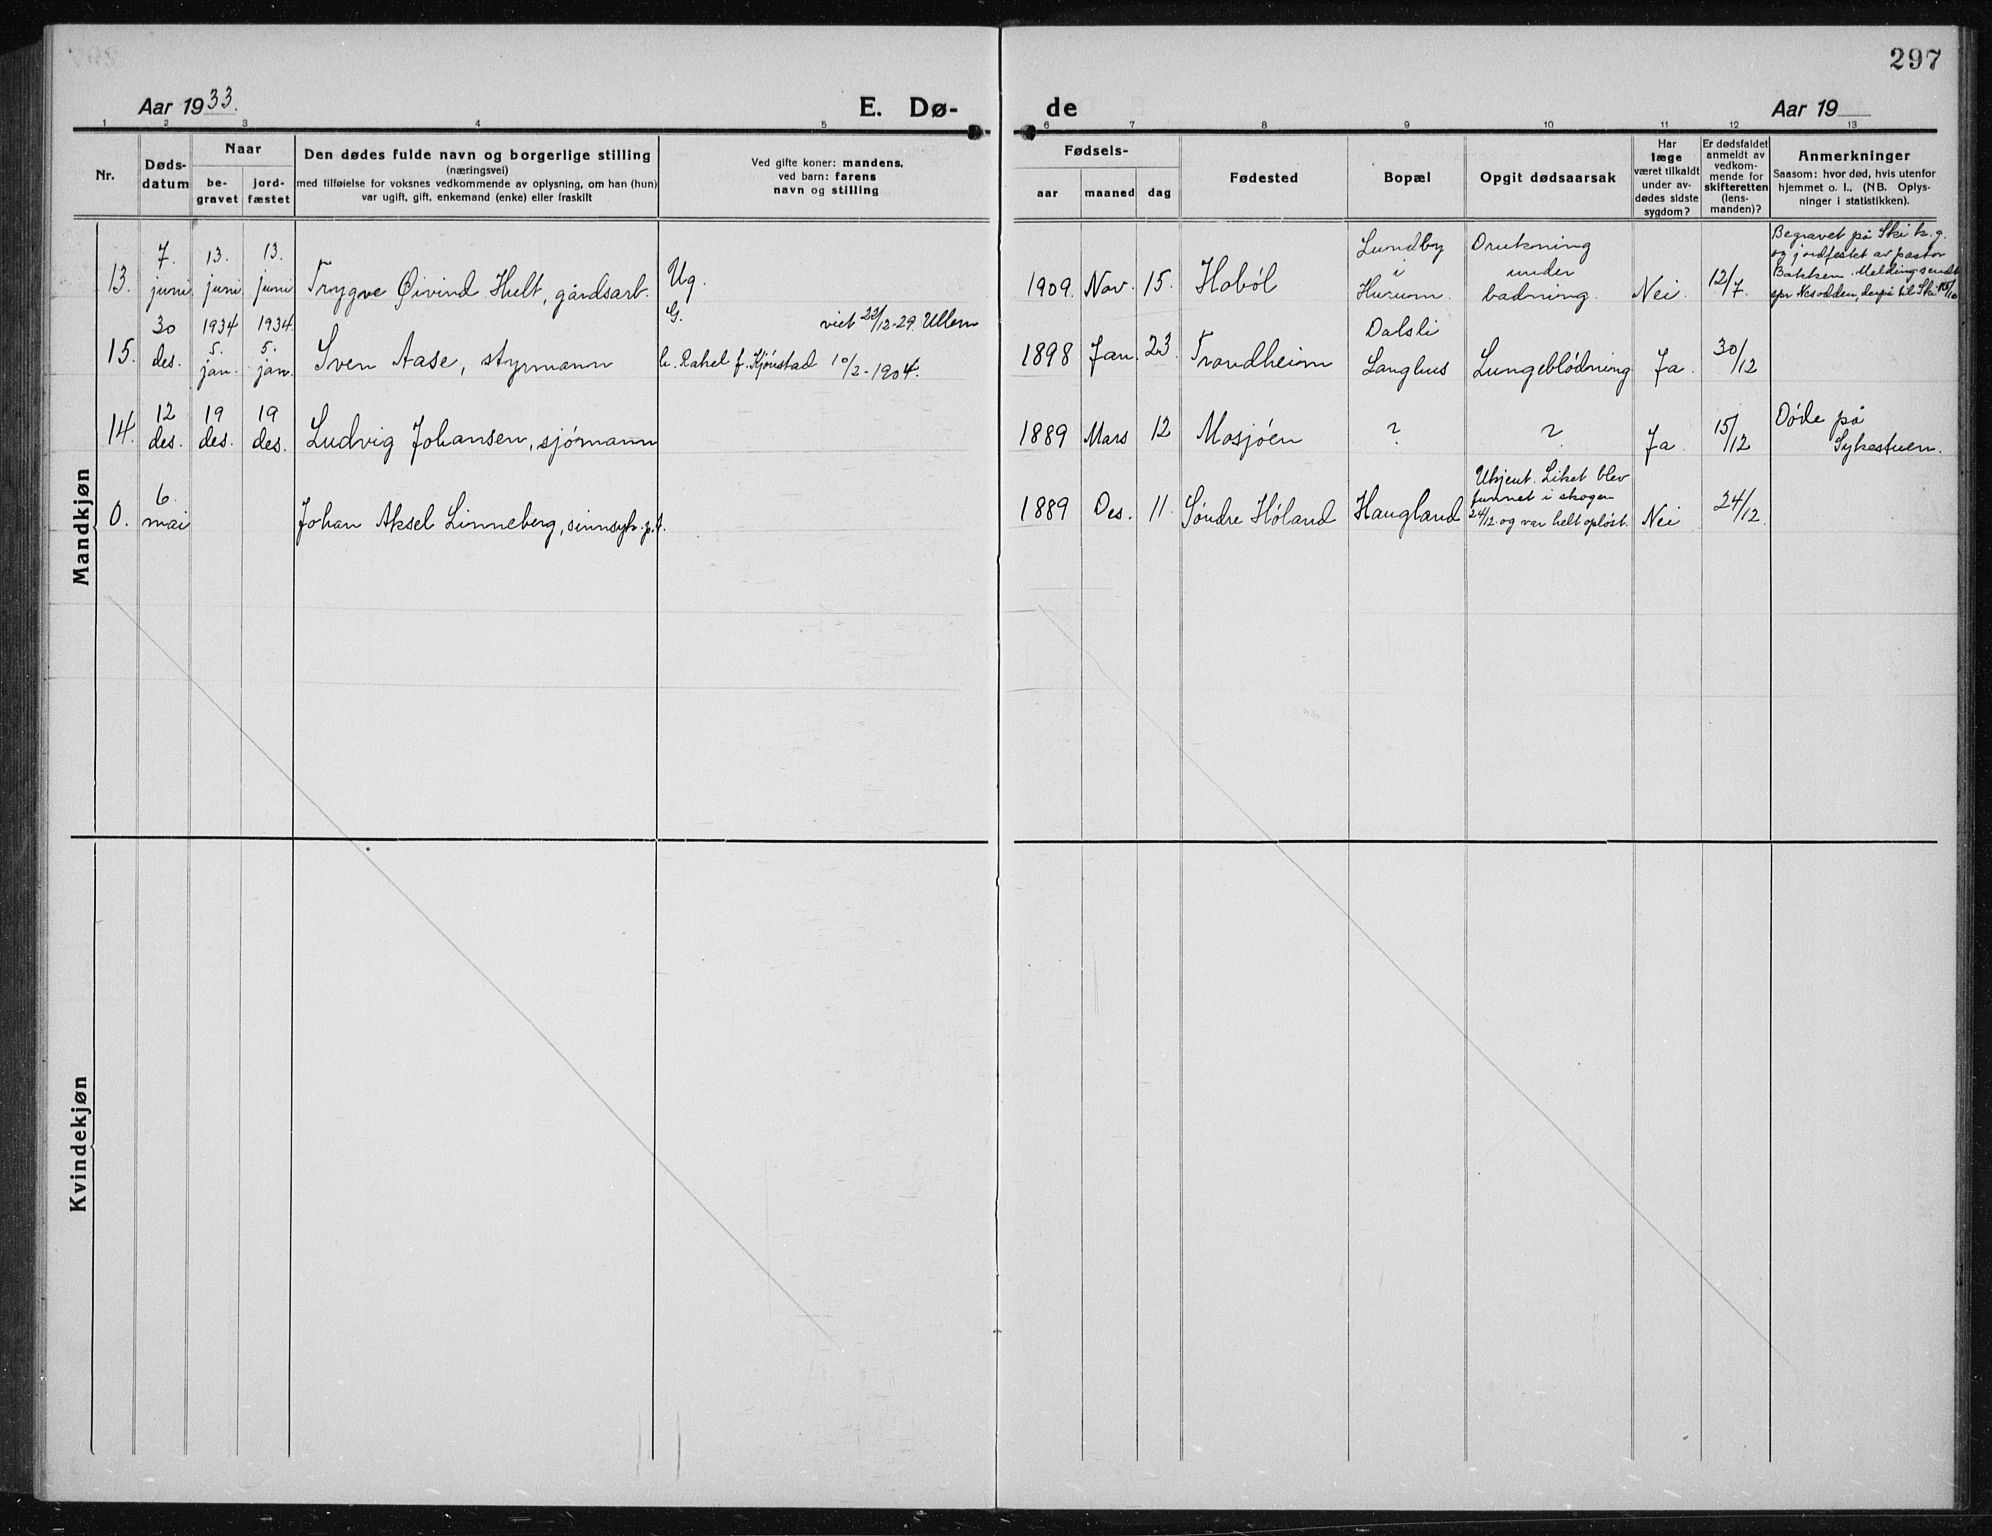 297
Aar 1933.
E. Dø-
de
Aar 19
1 2 3 4 5 6 7 8 9 10 11 12 13
Nr.
Døds-
datum
Naar
be-
gravet
jord-
fæstet
Den dødes fulde navn og borgerlige stilling
(næringsvei)
med tilføielse for voksnes vedkommende av oplysning, om han (hun)
var ugift, gift, enkemand (enke) eller fraskilt
Ved gifte koner: mandens,
ved barn: farens
navn og stilling
Fødsels-
aar maaned dag
Fødested
Bopæl
Opgit dødsaarsak
Har
læge
været tilkaldt
under av-
dødes sidste
sygdom?
Er dødsfaldet
anmeldt av
vedkom-
mende for
skifteretten
(lens-
manden)?
Anmerkninger
Saasom: hvor død, hvis utenfor
hjemmet o. l., (NB. Oplys-
ninger i statistikken).
Mandkjøn
13.
7.
juni
13.
juni
13.
juni
Trygve Øivind Hult, gårdsarb.
Ug.
1909. Nov. 15. Hobøl
Lundby
i
Hurum.
Drukning
under
badning.
Nei.
12/7.
Begravet på Ski k.g.
og jordfestet av pastor
Bakken. Melding sendt
spr Nesodden, derpå til Ski 15/10
15.
30
des.
1934
5.
jan.
1934.
5.
jan.
Sven Aase, styrmann
G. viet 22/12-29. Ullern
Rahel f. Kjønstad 10/2-1904.
1898 Jan. 23. Trondheim
Dalsli
Langhus
Lungeblødning
Ja.
30/12
14.
12
des.
19
des.
19
des.
Ludvig Johansen, sjømann
1889 Mars 12 Mosjøen
?
?
Ja.
15/12
Døde på
Sykestuen.
0.
6.
mai
Johan Aksel Linneberg, sinnsyk p.t.
1889 Des. 11. Søndre Høland Haugland
Ukjent. Liket blev
funnet i skogen
24/12. og var helt opløst.
Nei
24/12.
Kvindekjøn